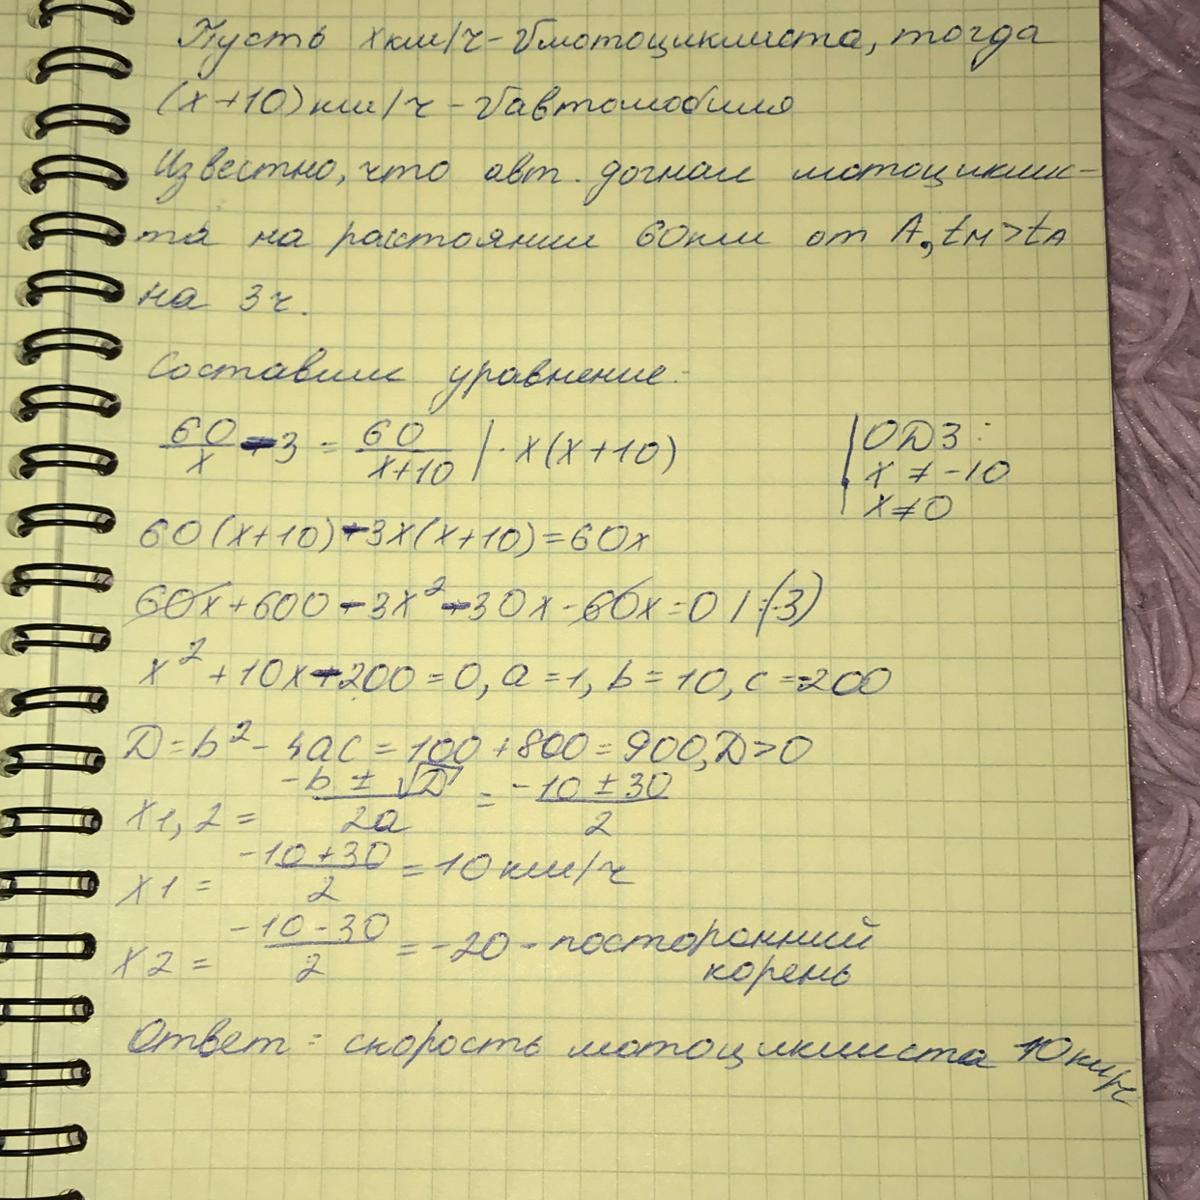 Пусть x км/ч - V мотоциклиста, тогда
(x+10) км/ч - V автомобиля
Известно, что авт. догнал мотоциклис-
та на расстоянии 60 км от A, tм > tA
на 3 ч.
Составим уравнение:
60/x - 3 = 60/(x+10) | · x(x+10)
ОДЗ:
x ≠ -10
x ≠ 0
60(x+10) - 3x(x+10) = 60x
60x + 600 - 3x² - 30x - 60x = 0 | :(-3)
x² + 10x - 200 = 0, a = 1, b = 10, c = -200
D = b² - 4ac = 100 + 800 = 900, D > 0
x1,2 = (-b ± √D)/2a = (-10 ± 30)/2
x1 = (-10 + 30)/2 = 10 км/ч
x2 = (-10 - 30)/2 = -20 - посторонний
корень
Ответ: скорость мотоциклиста 10 км/ч